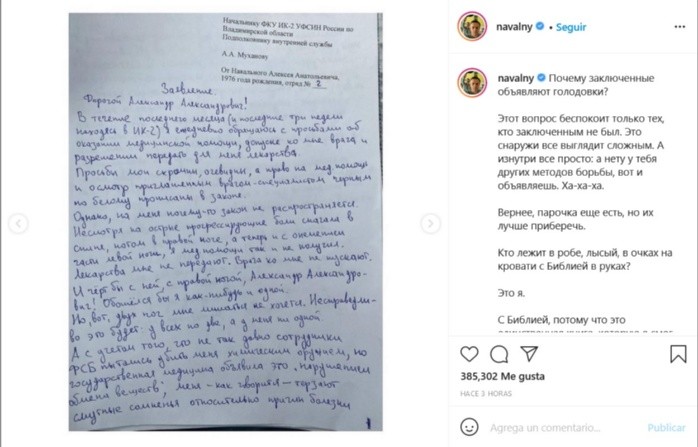 Начальнику ФКУ ИК-2 УФСИН России по
Владимирской области
Подполковнику внутренней службы
А.А. Муханову
От Навального Алексея Анатольевича,
1976 года рождения, отряд № 2
Заявление.
Дорогой Александр Александрович!
В течение последнего месяца (и последние три недели
находясь в ИК-2) я ежедневно обращаюсь с просьбами об
оказании медицинской помощи, допуске ко мне врача и
разрешении передать для меня лекарства.
Просьбы мои скромны, очевидны, а право на мед.помощь
и осмотр приглашенным врачем-специалистом черным
по белому прописаны в законе.
Однако, на меня почему-то закон не распространяется.
Несмотря на острые прогрессирующие боли сначала в
спине, потом в правой ноге, а теперь и с онемением
части левой ноги, я мед помощи так и не получил.
Лекарства мне не передают. Врача ко мне не пускают.
И чёрт бы с ней, с правой ногой, Александр Александро-
вич! Обошелся бы я как-нибудь и одной.
Но, вот, двух ног мне лишаться не хочется. Несправедли-
во это будет: у всех по две, а у меня ни одной.
А с учетом того, что не так давно сотрудники
ФСБ пытались убить меня химическим оружием, но
государственная медицина объявила это "нарушением
обмена веществ", меня - как говорится - терзают
смутные сомненья относительно причин болезни
1
navalny • Seguir
navalny Почему заключенные
объявляют голодовки?
Этот вопрос беспокоит только тех,
кто заключенным не был. Это
снаружи все выглядит сложным. А
изнутри все просто: а нету у тебя
других методов борьбы, вот и
объявляешь. Ха-ха-ха.
Вернее, парочка еще есть, но их
лучше приберечь.
Кто лежит в робе, лысый, в очках на
кровати с Библией в руках?
Это я.
С Библией, потому что это
385,302 Me gusta
HACE 3 HORAS
Agrega un comentario...
Publicar